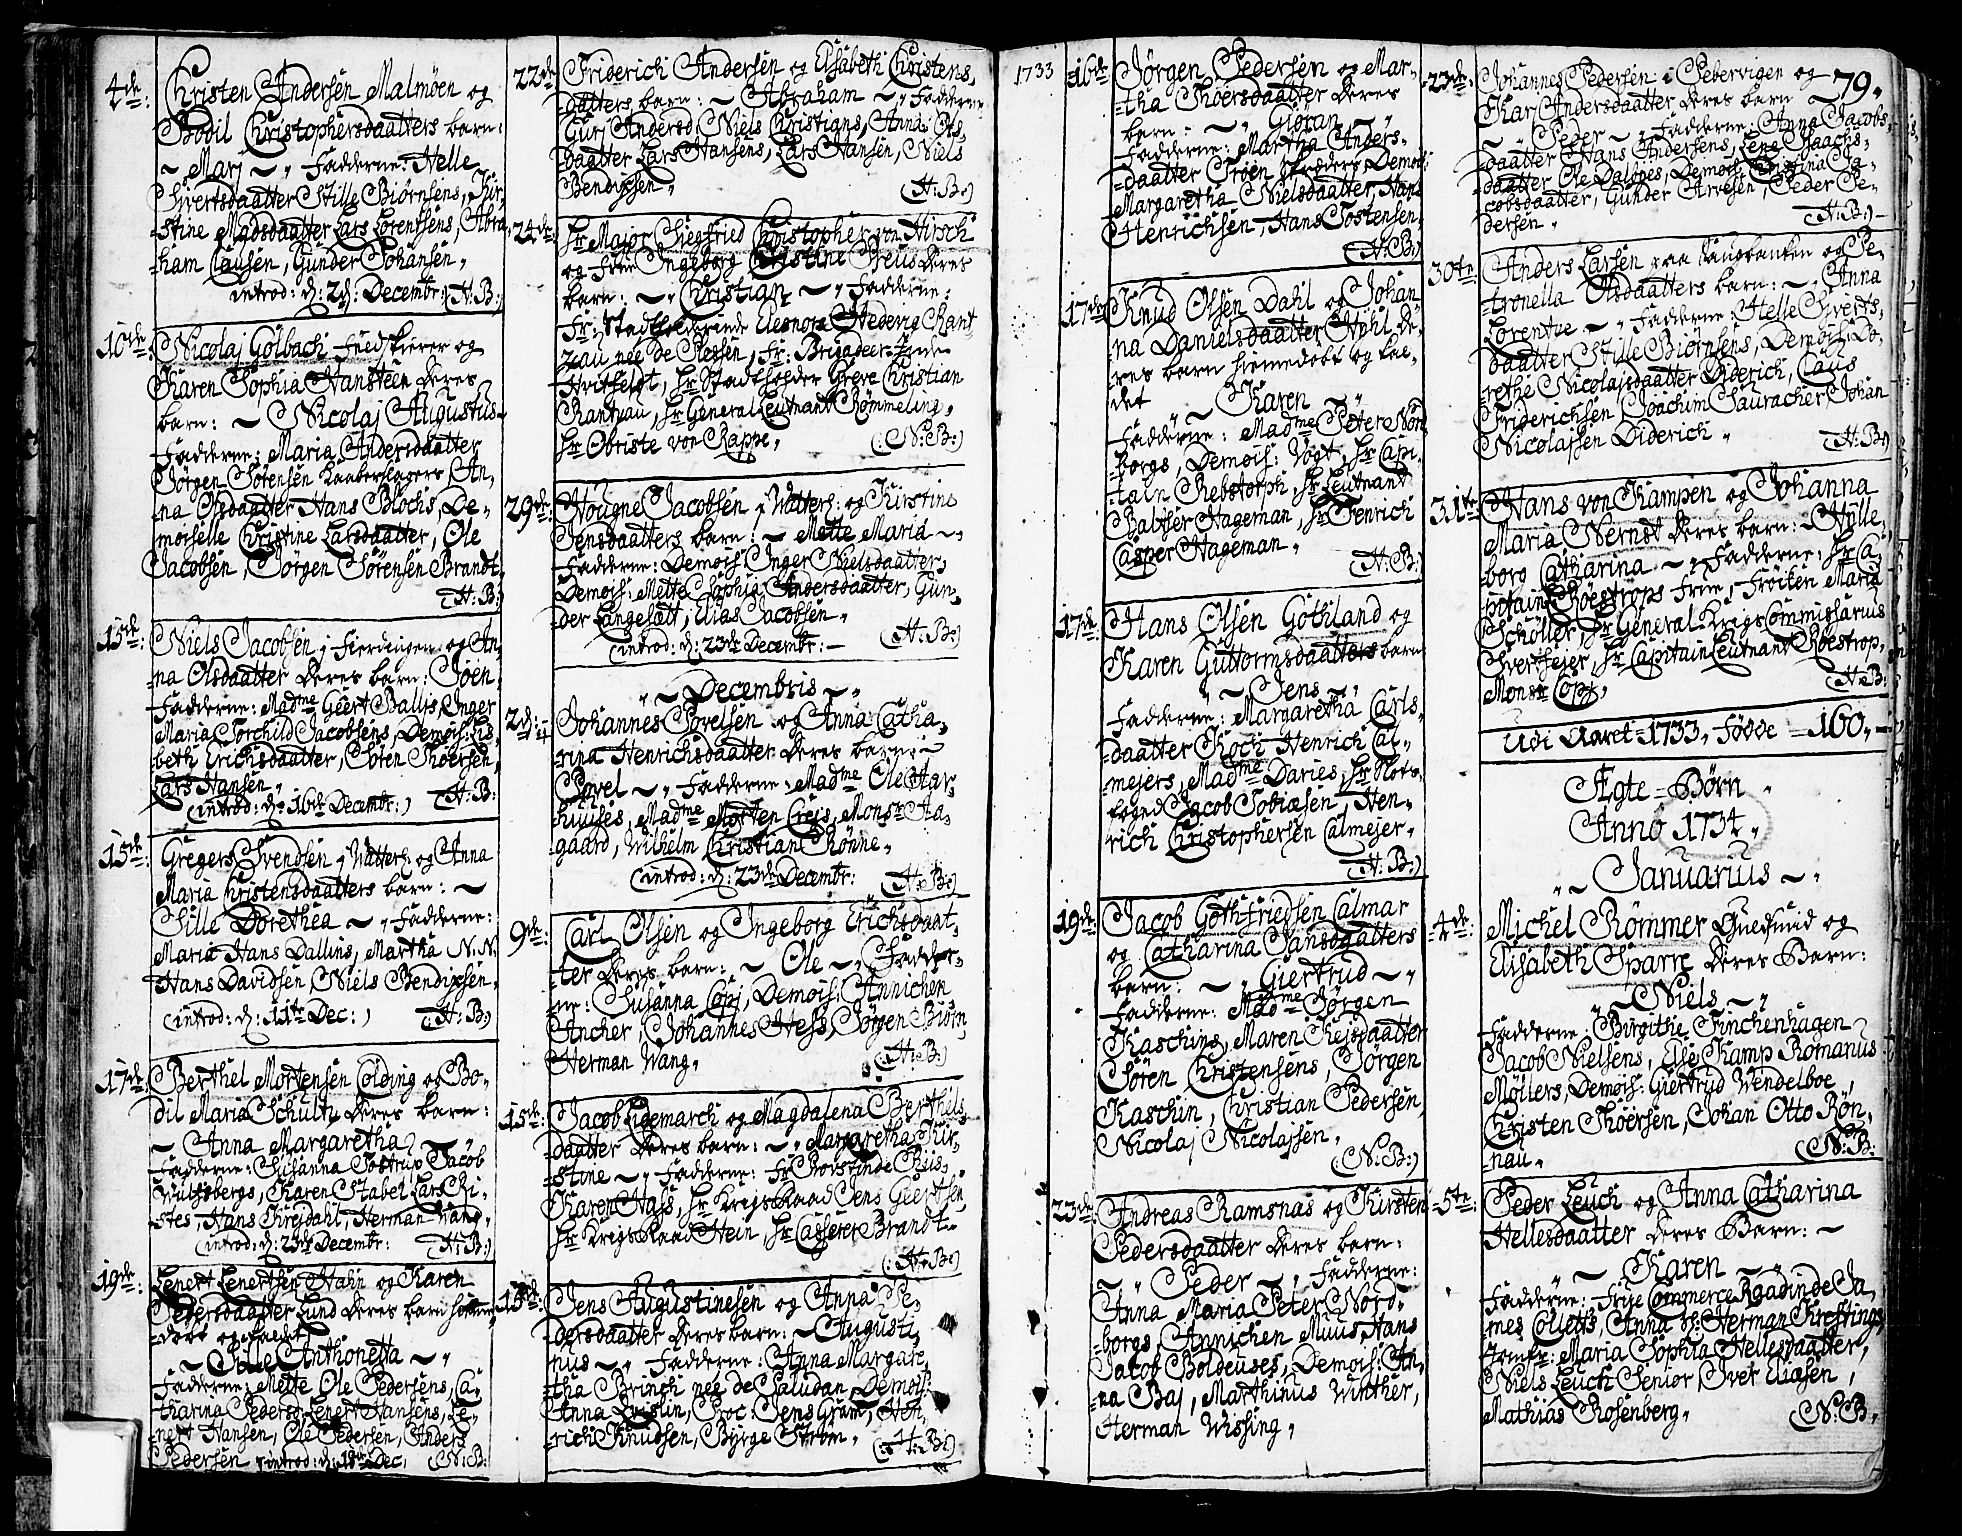 4de:
Christen Andersen Malmöen og
Bodil Christophersdaatters barn:
~ Marj ~ „ Fadderne: Helle
Sivertsdaatter Stille Biörnsens, Kir-
stine Madsdaatter Lars Lorentsens, Abra
ham Clausen, Gunder Johansen„
introd: d: 2d: Decembr: (H:B:)
10de:
Nicolaj Gölbach Feedskierer og
Karen Sophia Hansteen deres
barn: ~ Nicolaj Augustus ~
Fadderne: Maria Andersdaatter
Jörgen Sörensen Kaaberslagers, An-
na Olsdaatter Hans Blochs, De-
moiselle Christine Larsdaatter, Ole
Jacobsen, Jörgen Sörensen Brandt
(H:B:)
15de:
Niels Jacobsen i Fierdingen og An-
na Olsdaatter deres barn: Joen
Fadderne: Madme Geert Ballis, Inger
Maria Torchild Jacobsens, Demois: Lis-
beth Erichsdaatter, Soren Thoersen,
Lars Hansen„
(introd: d: 16de Decembr:) (H:B:
15de:
Gregers Svendsen i Watterl: og Anna
Maria Christensdaatters barn: ~
Sille Dorethea ~ „ Fadderne:
Maria Hans Dallins, Martha N:N:
Hans Davidsen, Niels Bendixsen.
(introd: d: 11te Dec:) (H:B:)
17de:
Berthel Mortensen Colding og Bo-
dil Maria Schultz deres barn:
~ Anna Margaretha ~
Fadderne: Susanna Tostrup Jacob
Wulfsbergs, Karen Stabel Lars Ri-
stes, Hans Krejdahl, Herman Wang,
(introd: d: 23de Decembr: (H:B:)
19de:
Lenert Lenertsen Hahn og Karen
Pedersdaatter Lund deres barn hiemme-
döbt og kaldt
~ Sille Anthonetta ~ „
Fadderne: Mette Ole Pedersens, Ca-
tharina Peders: Lenert Hansens, Le-
nert Hansen, Ole Pedersen, Anders
Pedersen (introd: d: 19de Dec. (N:B:
22de
Friderich Andersen og Elisabeth Christens-
daatters barn: ~ Abraham ~ „ Fadderne
Gurj Andersd: Niels Christians, Anna Ols-
daatter Lars Hansens, Lars Hansen, Niels
Bendixsen„
(H:B:)
24de:
Hr Major Siegfried Christopher von Hirsch
og Frue Ingeborg Christine Preus deres
barn: ~ „ Christian ~ „ Fadderne:
Fr: Stadtholderinde Eleonora Hedevig Rant
zau née de Plessen, Fr: Brigadeer-inde
Hvitfeldt, Hr Stadtholder Greve Christian
Rantzau, Hr General Leutnant Römmeling,
Hr Obriste von Rappe„ (:N:B:)
29de:
Hougne Jacobsen i Watterl: og Kirstine
Jensdaatters barn: ~ Mette Maria ~„
Fadderne: Demois: Inger Nielsdaatter,
Demois: Mette Sophia Andersdaatter, Gun-
der Langesått, Elias Jacobsen„
(introd: d: 23de Decembr: ~ (H:B:)
„ ~ Decembris ~ „
2d:
Johannes Povelsen og Anna Catha-
rina Henrichsdaatter deres barn: ~
Povel ~ „ Fadderne: Madme Ole Aar-
huuses, Madme Morten Crejs, Monsr Aa-
gaard, Wilhelm Christian Rönne„
(introd: d: 23de Decembr: (H:B:)
9de:
Carl Olsen og Ingeborg Erichsdaat-
ter deres barn: ~ Ole ~ „ Fadder-
ne: Susanna Copj, Demois: Annichen
Ancher, Johannes Hess, Jörgen Biörn
Herman Wang„ (H:B:)
15de:
Jacob Ligemarch og Magdalena Berthels-
daatter deres barn: ~ „ Margaretha Kir-
stine ~ „ Fadderne: Fr: Provstinde Riis-
Karen Hass, Hr KrigsRaad Jens Geertsen,
Hr KrigsRaad Hein, Hr Casserer Brandt
(:H:B:)
15de:
Jens Augustinesen og Anna Pe-
dersdaatter deres barn: ~ Augusti-
nus ~ „ Fadderne: Anna Margare-
tha Brinch née de Saludan, Demois:
Anna Qvislin, Proc: Jens Gram, Hen-
rich Knudsen, Byrge Ström„ (:H:B:)
1733
16de
Jörgen Pedersen og Mar-
tha Thoersdaatter deres
barn: ~ „ Giöran ~ „
Fadderne: Martha Anders-
daatter Troen skreders, Demois:
Margaretha Nielsdaatter, Hans
Henrichsen, Hans Tostensen,
(H:B:)
17de
Knud Olsen Dahl og Johan
na Danielsdaatter Hyhl de-
res barn hiemedöbt og kal-
det „ ~ Karen ~ „
Fadderne: Madme Peter Nor
borgs, Demois: Vogt, Hr Capi-
tain Rebstorph, Hr Leutnant
Baltser Hageman, Hr Henrich
Casper Hageman„
(H:B:)
17de
Hans Olsen Gothland og
Karen Guttormsdaatters barn
„ ~ Jens ~ „
Fadderne: Margaretha Carls-
daatter Koch Henrich Cal-
mejers, Madme Daries, Hr Slots-
foged Jacob Tobiæsen, Hen-
rich Christophersen Calmejer„
(H:B:)
19de:
Jacob Gothfriedsen Calmar
og Catharina Jansdaatters
barn: ~ „ Giertrud ~ „
Fadderne: Madme Jörgen
Kaschins, Maren Kejsdaatter
Sören Christensens, Jörgen
Kaschin, Christian Pedersen,
Nicolaj Nicolajsen,
(:N:B:)
23de
Andreas Ramsnas og Kirsten
Pedersdaatter deres barn:
~ „ Peder ~ „ Fadderne:
Anna Maria Peter Nord-
borgs, Annichen Muus Hans
Jacob Boldeuses, Demois: An-
na Baj, Marthinus Winther,
Herman Wissing„
23de:
Johannes Pedersen i Pebervigen og
79.
Kar Andersdaatter deres barn
~ „ Peder ~ „ Fadderne: Anna Jacobs-
daatter Hans Andersens, Lena Isaachs-
daatter Ole Daloes, Demois: Christina Ja-
cobsdaatter, Gunder Arvesen, Peder Pe-
dersen„ (H:B:)
30te:
Anders Larsen paa Laugbanken og Pe-
tronella Olsdaatters barn: ~ „ Anna
Lorentse ~ „ Fadderne: Helle Siverts-
daatter Stille Biörnsens, Demois: Do-
rethe Nicolajsdaatter Diderich, Claus
Friderichsen, Joachim Sauracher, Johan
Nicolajsen Diderich„ (H:B:)
31te
Hans von Kampen og Johanna
Maria Nerndt deres barn: ~ Wylle-
borg Catharina ~ „ Fadderne: Hr Ca-
pitain Roestrops Frue, Fröiken Maria
Schöller, Hr General Krigs Commissarius
Svertfejer, Hr Capitain Leutnant Roestrop,
Monsr Copj„ (H:B:
Udi Aaret 1733, födde = 160„ ~
Ægte = Börn „
Anno 1734„
„ ~ Januarius ~ „
4de:
Michel Römmer Guldsmid og
Elisabeth Sparre deres Barn:
„ ~ Niels ~ „
Fadderne: Birgithe Finckenhagen
Jacob Nielsens, Else Kamp Romanus
Möllers, Demois: Giertrud Wendelboe,
Christen Thoersen, Johan Otto Rön-
nau„ (N:B:
5te:
Peder Leuch og Anna Catharina
Hellesdaatter deres Barn: ~
„ ~ Karen ~ „
Fadderne: Frue Commerce Raadinde Ja-
mes Colletts, Anna Sl: Herman Kreftings,
Jomfr: Maria Sophia Hellesdaatter,
Niels Leuch Senior, Iver Eliæsen,
Mathias Rosenberg„ (N:B.